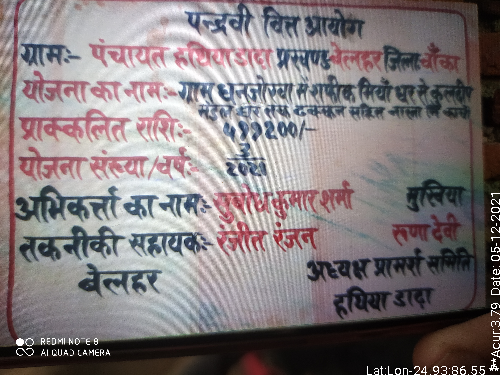 पन्द्रवी वित आयोग
ग्राम:- पंचायत हथिया डाढा प्रखण्ड बेलहर जिला बाँका
योजना का नाम:- ग्राम धनजोरवा में शफीक मियाँ घर से कुलदीप
मंडल घर तक ढक्कन सहित नाला का कार्य
प्राक्कलित राशि:- 499200/-
योजना संख्या/वर्ष:- 3/2021
अभिकर्त्ता का नाम:- सुबोध कुमार शर्मा मुखिया
तकनीकी सहायक:- रंजीत रंजन रूणा देवी
बेलहर अध्यक्ष प्रामर्श समिति
हथिया डाढा
REDMI NOTE 8
AI QUAD CAMERA
Lat:Lon-24.93:86.55 **Acur:3.79 Date:05-12-2021